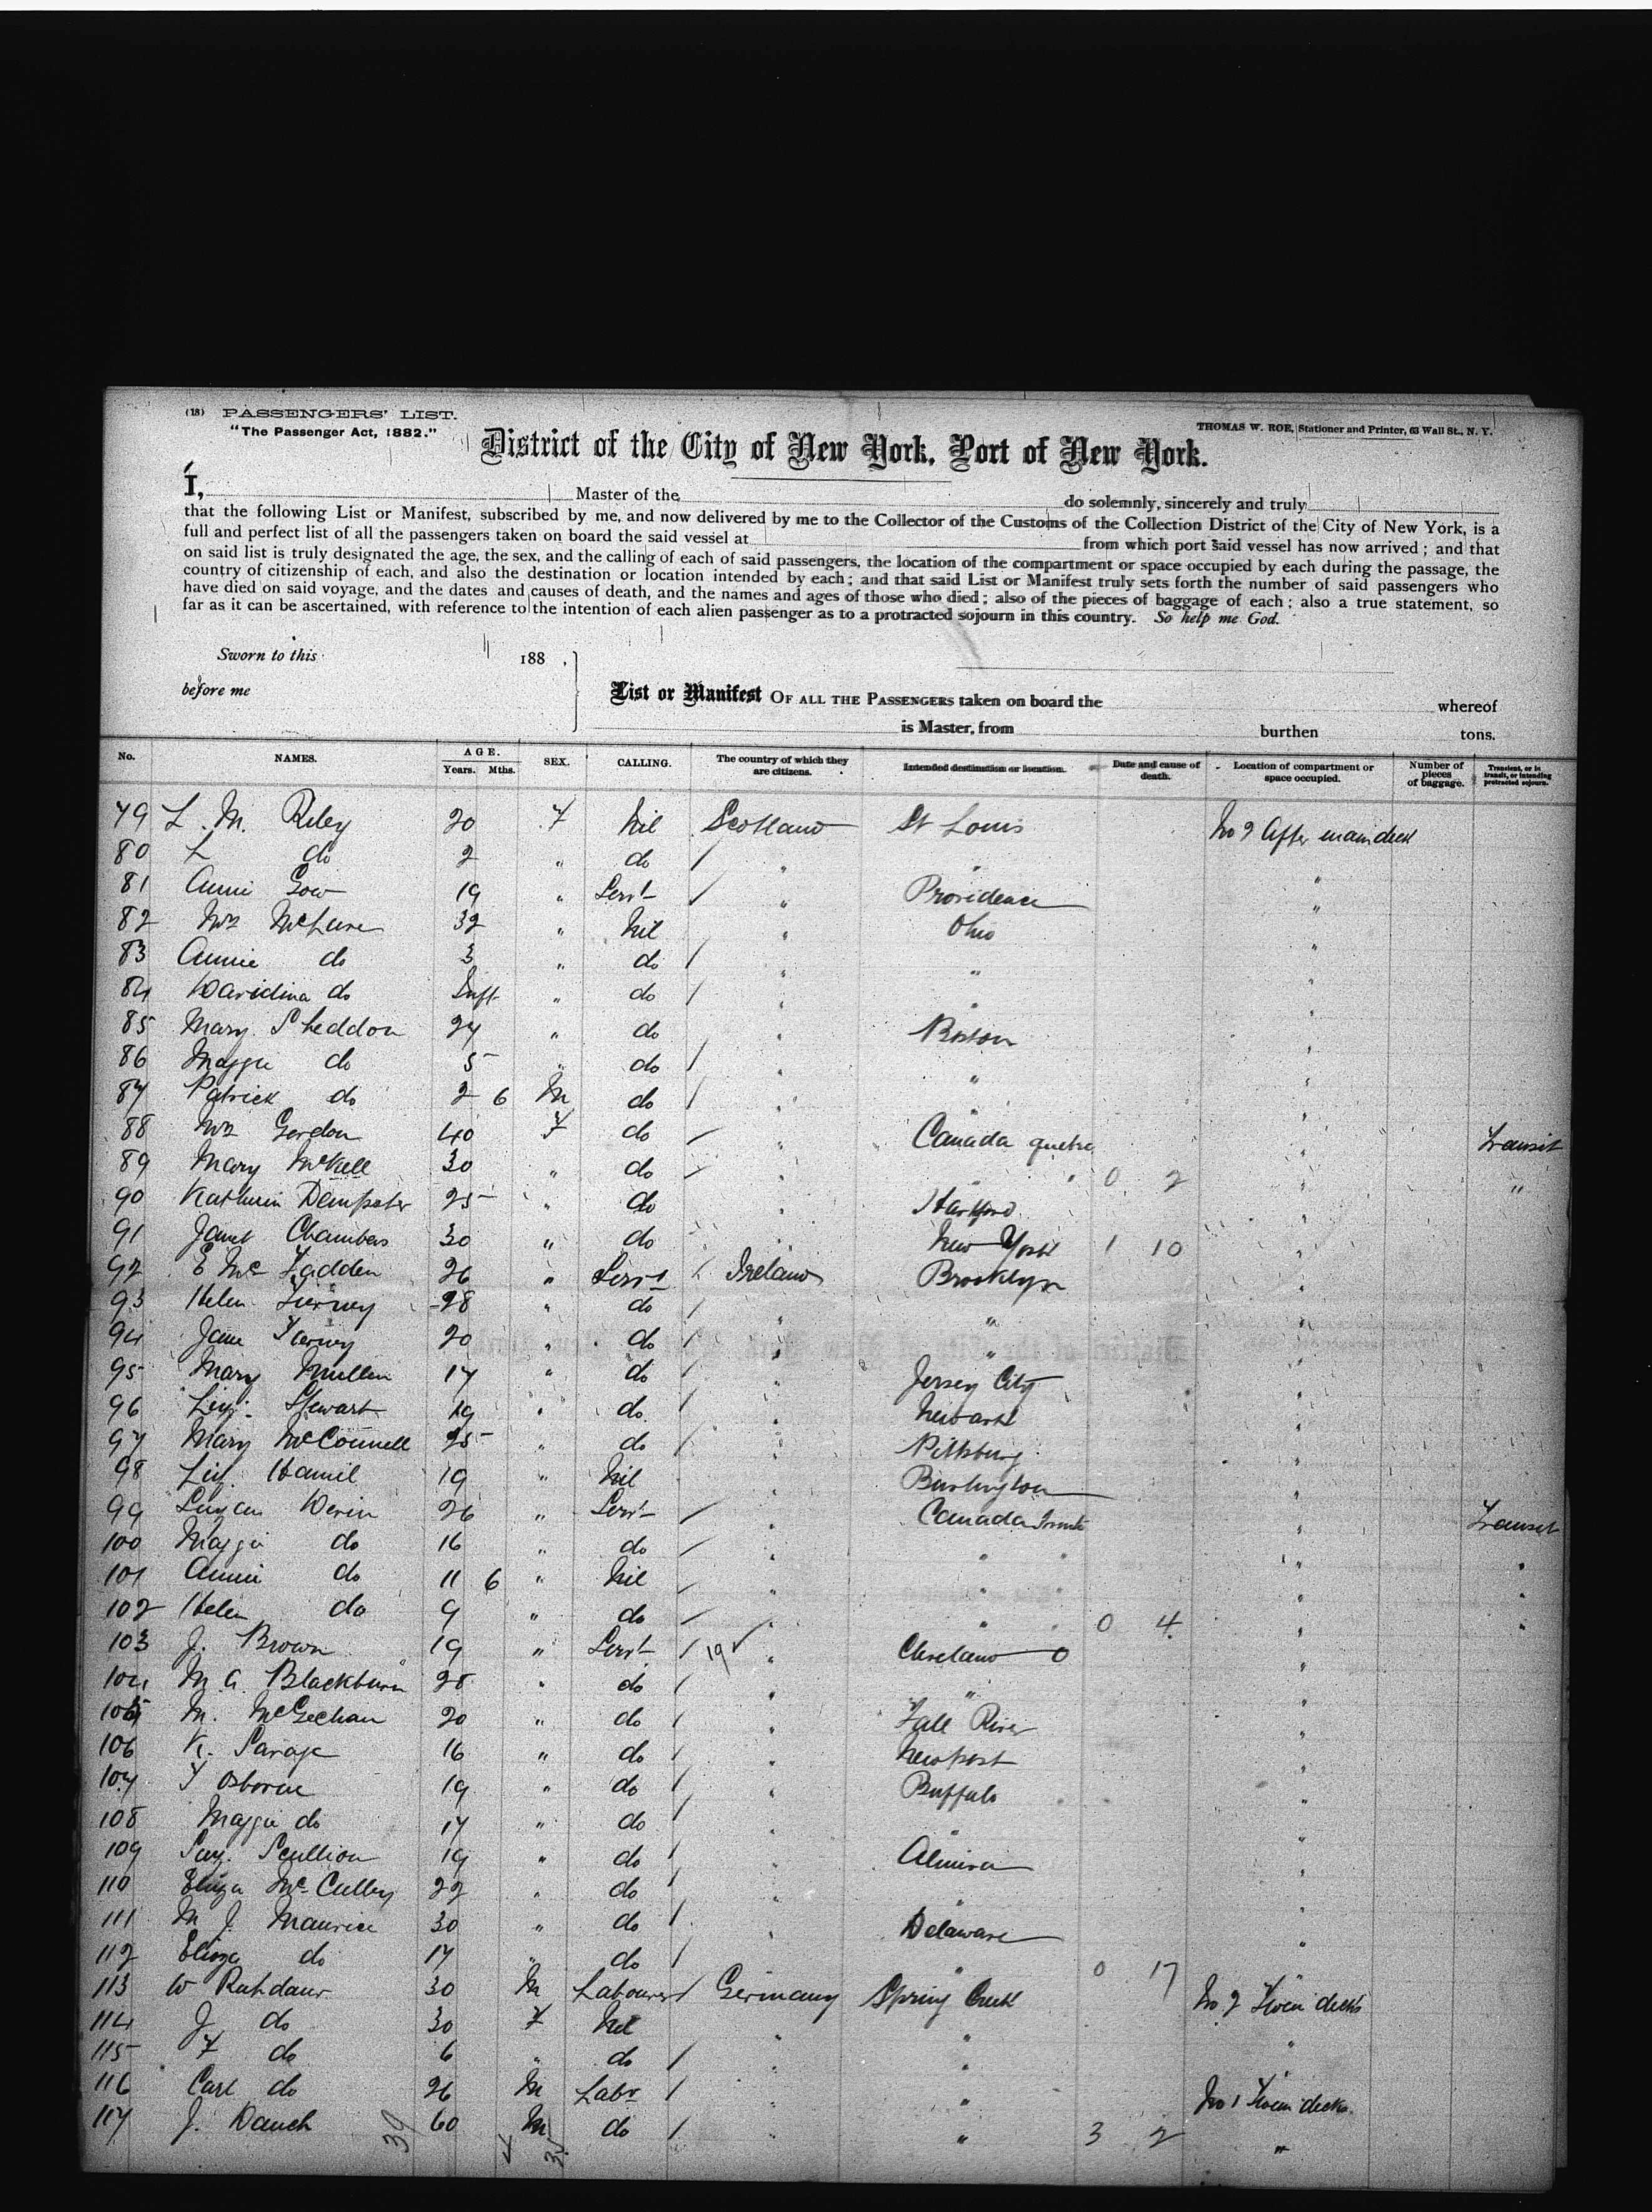 (18) PASSENGERS' LIST.
"The Passenger Act, 1882."
THOMAS W. ROE, Stationer and Printer, 63 Wall St., N. Y.
District of the City of New York, Port of New York.
I, Master of the do solemnly, sincerely and truly
that the following List or Manifest, subscribed by me, and now delivered by me to the Collector of the Customs of the Collection District of the City of New York, is a
full and perfect list of all the passengers taken on board the said vessel at from which port said vessel has now arrived; and that
on said list is truly designated the age, the sex, and the calling of each of said passengers, the location of the compartment or space occupied by each during the passage, the
country of citizenship of each, and also the destination or location intended by each; and that said List or Manifest truly sets forth the number of said passengers who
have died on said voyage, and the dates and causes of death, and the names and ages of those who died; also of the pieces of baggage of each; also a true statement, so
far as it can be ascertained, with reference to the intention of each alien passenger as to a protracted sojourn in this country. So help me God.
Sworn to this 188 .
before me
List or Manifest OF ALL THE PASSENGERS taken on board the whereof
is Master, from burthen tons.
No. NAMES. AGE. Years. Mths. SEX. CALLING. The country of which they are citizens. Intended destination or location. Date and cause of death. Location of compartment or space occupied. Number of pieces of baggage. Transient, or in transit, or intending protracted sojourn.
79 L. M. Riley 20 F Nil Scotland St Louis No 2 After main deck
80 L do 2 " do / " " "
81 Annie Gow 19 " Servt / " Providence "
82 Mrs McLure 32 " Nil " Ohio "
83 Annie do 3 " do / " " "
84 Davidina do Inft " do / " " "
85 Mary Sheddon 27 " do " Boston "
86 Maggie do 5 " do / " " "
87 Patrick do 2 6 M do / " " "
88 Mrs Gordon 40 F do / " Canada Quebec " Transit
89 Mary McKell 30 " do / " " " 0 2 " "
90 Kathrein Dempster 25 " do " Hartford "
91 Janet Chambers 30 " do " New York 1 10 "
92 E McFadden 26 " Servt / Ireland Brooklyn "
93 Helen Tierney 28 " do / " " "
94 Jane Tierney 20 " do / " " "
95 Mary Mullen 17 " do / " Jersey City "
96 Stewart 19 " do / " Newark "
97 Mary McConnell 25 " do / " Pittsburg "
98 Hamil 19 " Nil " Burlington "
99 Devin 26 " Servt / " Canada Toronto " Transit
100 Maggie do 16 " do / " " " " "
101 Annie do 11 6 " Nil / " " " " "
102 Helen do 9 " do / " " " 0 4 " "
103 J. Brown 19 " Servt / 19 ✓ " Cleveland O "
104 M A Blackburn 28 " do / " " "
105 M. McGechan 20 " do / " Fall River "
106 K. Savage 16 " do / " Newport "
107 F Osborne 19 " do / " Buffalo "
108 Maggie do 17 " do / " " "
109 Scullion 19 " do / " Almira "
110 Eliza McCulley 22 " do / " " "
111 M J. Maurice 30 " do / " Delaware "
112 Eliza do 17 " do / " " 0 17 "
113 W Ruhdaur 30 M Labourer / Germany Spring Creek No 2 Tween decks
114 J do 30 F Nil " " "
115 F do 6 " do / " " "
116 Carl do 26 M Labr / " " No 1 Tween decks
117 J. Dauch 60 M do / " " 3 2 "
39